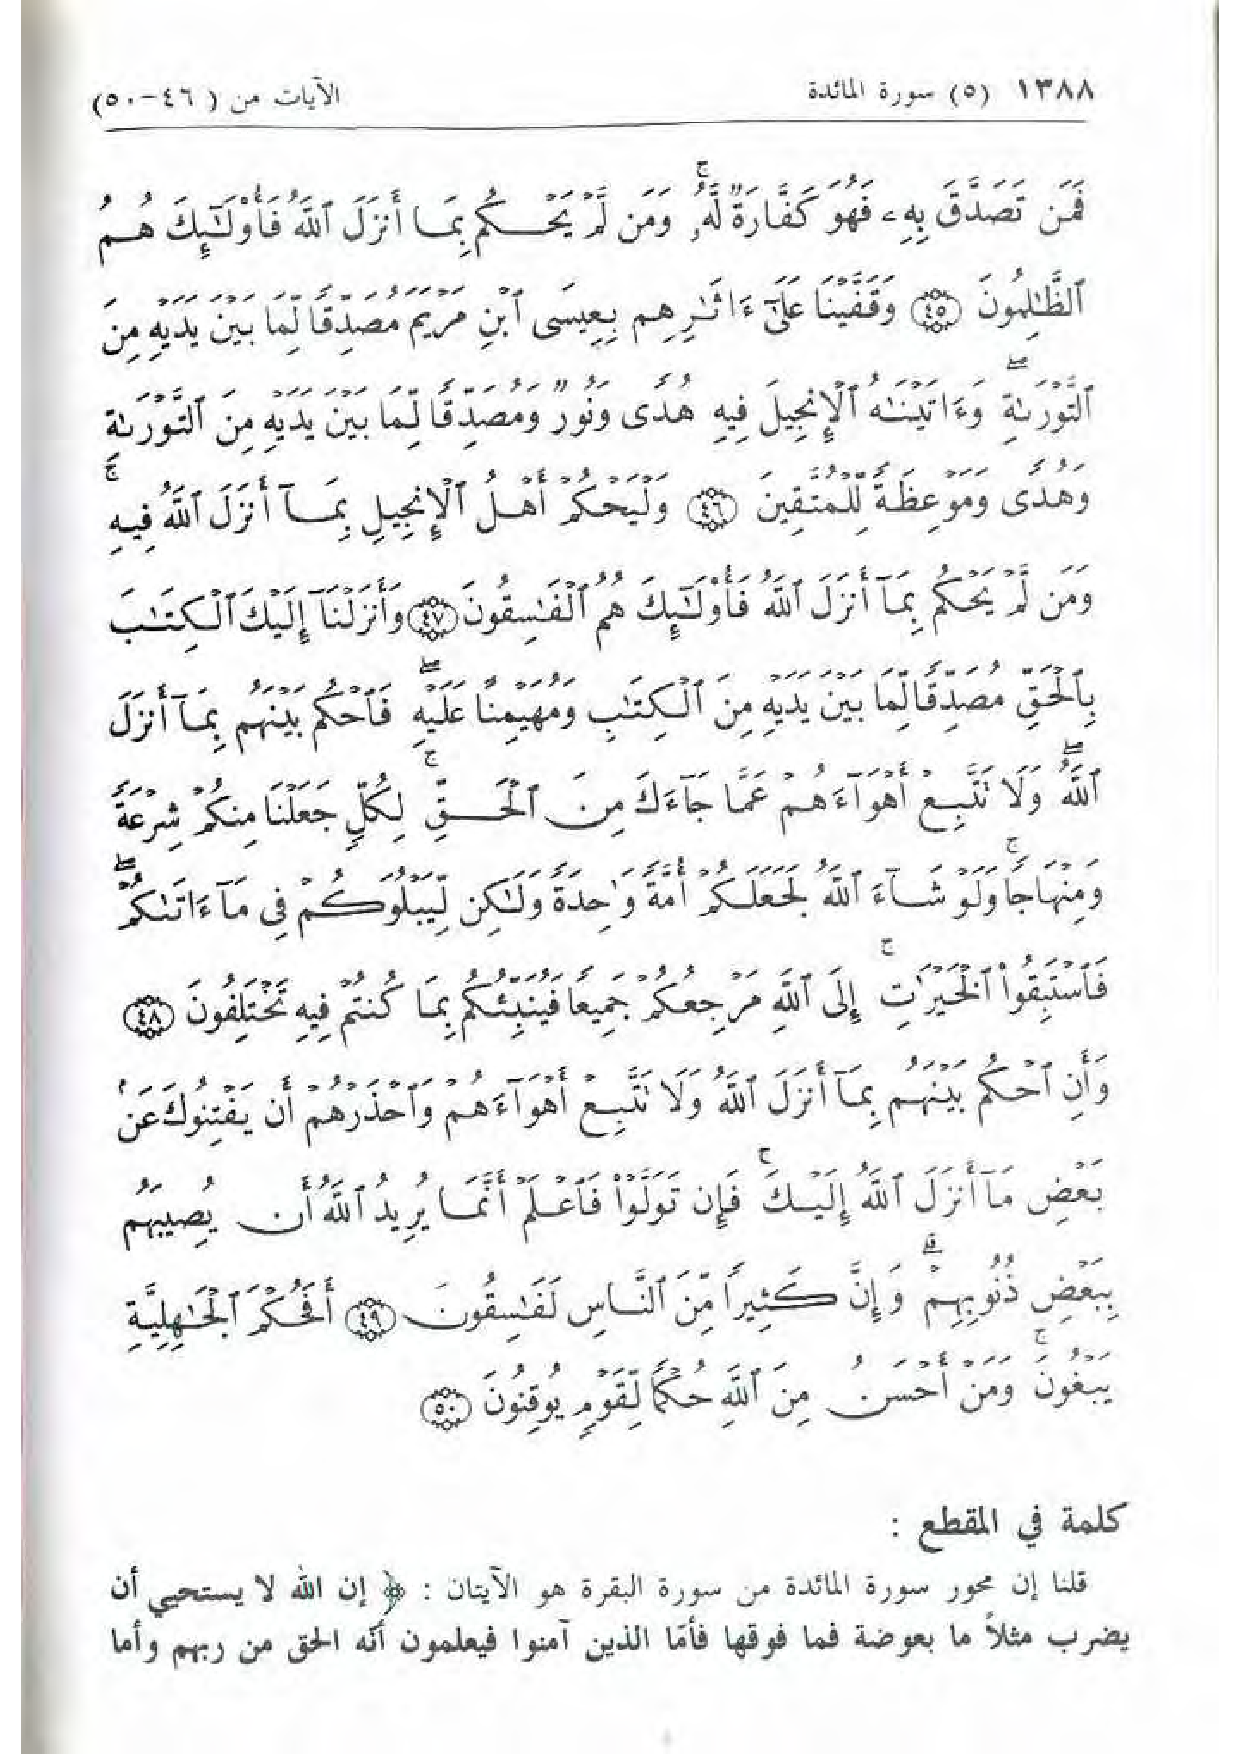 ١٣٨٨ (٥) سورة المائدة الآيات من (٤٦-٥٠)
فَمَن تَصَدَّقَ بِهِۦ فَهُوَ كَفَّارَةٌ لَّهُۥ ۚ وَمَن لَّمْ يَحْكُم بِمَا أَنزَلَ ٱللَّهُ فَأُو۟لَـٰٓئِكَ هُمُ
ٱلظَّـٰلِمُونَ ﴿٤٥﴾ وَقَفَّيْنَا عَلَىٰٓ ءَاثَـٰرِهِم بِعِيسَى ٱبْنِ مَرْيَمَ مُصَدِّقًا لِّمَا بَيْنَ يَدَيْهِ مِنَ
ٱلتَّوْرَىٰةِ ۖ وَءَاتَيْنَـٰهُ ٱلْإِنجِيلَ فِيهِ هُدًى وَنُورٌ وَمُصَدِّقًا لِّمَا بَيْنَ يَدَيْهِ مِنَ ٱلتَّوْرَىٰةِ
وَهُدًى وَمَوْعِظَةً لِّلْمُتَّقِينَ ﴿٤٦﴾ وَلْيَحْكُمْ أَهْلُ ٱلْإِنجِيلِ بِمَآ أَنزَلَ ٱللَّهُ فِيهِ ۚ
وَمَن لَّمْ يَحْكُم بِمَآ أَنزَلَ ٱللَّهُ فَأُو۟لَـٰٓئِكَ هُمُ ٱلْفَـٰسِقُونَ ﴿٤٧﴾ وَأَنزَلْنَآ إِلَيْكَ ٱلْكِتَـٰبَ
بِٱلْحَقِّ مُصَدِّقًا لِّمَا بَيْنَ يَدَيْهِ مِنَ ٱلْكِتَـٰبِ وَمُهَيْمِنًا عَلَيْهِ ۖ فَٱحْكُم بَيْنَهُم بِمَآ أَنزَلَ
ٱللَّهُ ۖ وَلَا تَتَّبِعْ أَهْوَآءَهُمْ عَمَّا جَآءَكَ مِنَ ٱلْحَقِّ ۚ لِكُلٍّ جَعَلْنَا مِنكُمْ شِرْعَةً
وَمِنْهَاجًا ۚ وَلَوْ شَآءَ ٱللَّهُ لَجَعَلَكُمْ أُمَّةً وَٰحِدَةً وَلَـٰكِن لِّيَبْلُوَكُمْ فِى مَآ ءَاتَىٰكُمْ ۖ
فَٱسْتَبِقُوا۟ ٱلْخَيْرَٰتِ ۚ إِلَى ٱللَّهِ مَرْجِعُكُمْ جَمِيعًا فَيُنَبِّئُكُم بِمَا كُنتُمْ فِيهِ تَخْتَلِفُونَ ﴿٤٨﴾
وَأَنِ ٱحْكُم بَيْنَهُم بِمَآ أَنزَلَ ٱللَّهُ وَلَا تَتَّبِعْ أَهْوَآءَهُمْ وَٱحْذَرْهُمْ أَن يَفْتِنُوكَ عَنۢ
بَعْضِ مَآ أَنزَلَ ٱللَّهُ إِلَيْكَ ۖ فَإِن تَوَلَّوْا۟ فَٱعْلَمْ أَنَّمَا يُرِيدُ ٱللَّهُ أَن يُصِيبَهُم
بِبَعْضِ ذُنُوبِهِمْ ۗ وَإِنَّ كَثِيرًا مِّنَ ٱلنَّاسِ لَفَـٰسِقُونَ ﴿٤٩﴾ أَفَحُكْمَ ٱلْجَـٰهِلِيَّةِ
يَبْغُونَ ۚ وَمَنْ أَحْسَنُ مِنَ ٱللَّهِ حُكْمًا لِّقَوْمٍ يُوقِنُونَ ﴿٥٠﴾
كلمة في المقطع :
قلنا إن محور سورة المائدة من سورة البقرة هو الآيتان : ﴿ إن الله لا يستحيي أن
يضرب مثلاً ما بعوضة فما فوقها فأمّا الذين آمنوا فيعلمون أنّه الحق من ربهم وأما